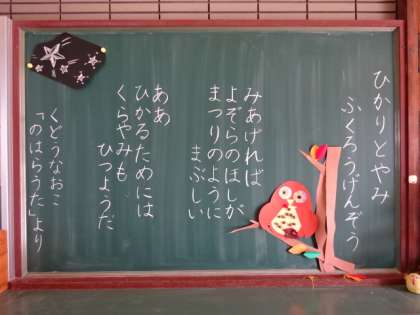 ひかりとやみ
ふくろうげんぞう
みあげれば
よぞらのほしが
まつりのように
まぶしい
ああ
ひかるためには
くらやみも
ひつようだ
くどうなおこ
「のはらうた」より